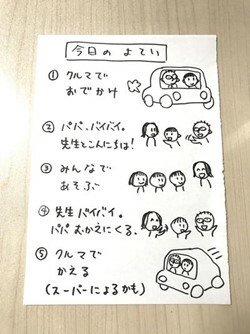 今日のよてい
① クルマで
おでかけ
② パパ、バイバイ。
先生とこんにちは!
③ みんなで
あそぶ
④ 先生バイバイ。
パパおむかえにくる。
⑤ クルマで
かえる
(スーパーによるかも)